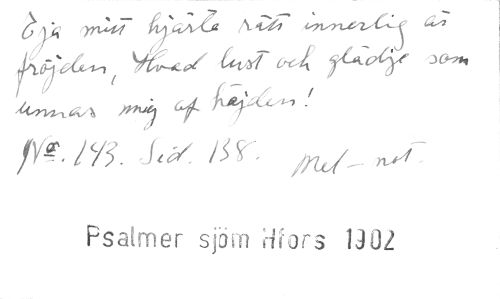 Eja mitt hjärta rätt innerlig är
fröjden, Hvad lust och glädje som
unnas mig af höjden!
No. 143. Sid. 138. Mel-not.
Psalmer sjöm Hfors 1902